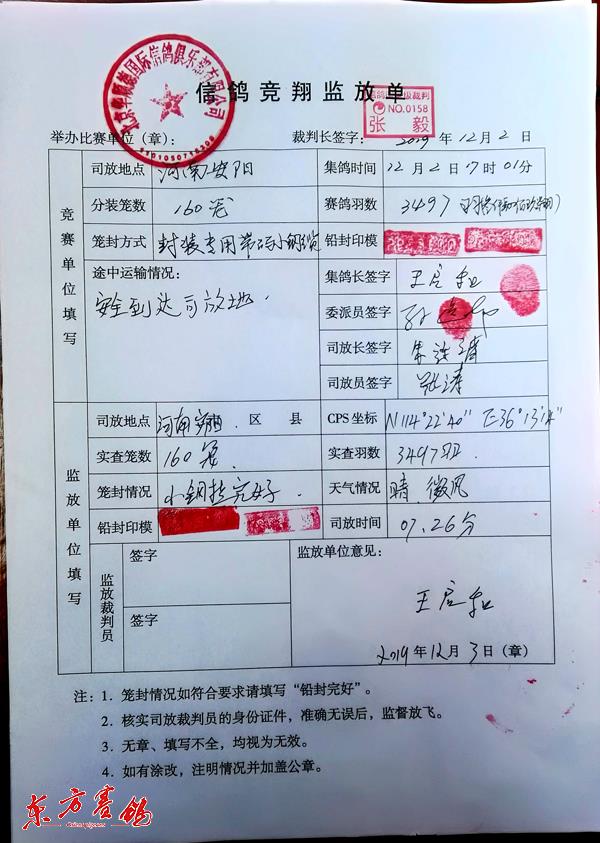 信鸽竞翔监放单
NO.0158
张毅
举办比赛单位（章）： 裁判长签字： 2019年12月2日
竞赛单位填写
司放地点 河南安阳 集鸽时间 12月2日17时01分
分装笼数 160笼 赛鸽羽数 3497
笼封方式 封装专用带码小钢缆 铅封印模
途中运输情况： 集鸽长签字
安全到达司放地. 委派员签字
司放长签字
司放员签字 张涛
监放单位填写
司放地点 河南 区 县 CPS坐标 N114°22'40" E36°13'14"
实查笼数 160笼. 实查羽数 3497羽.
笼封情况 小钢缆完好. 天气情况 晴.微风
铅封印模 司放时间 07.26分
监放裁判员 签字 监放单位意见：
签字
2019年12月3日（章）
注：1．笼封情况如符合要求请填写“铅封完好”。
2．核实司放裁判员的身份证件，准确无误后，监督放飞。
3．无章、填写不全，均视为无效。
4．如有涂改，注明情况并加盖公章。
东方赛鸽